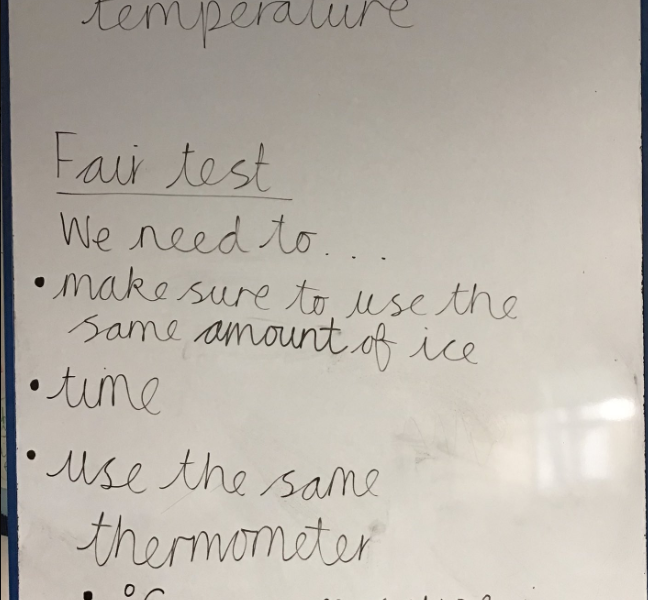 temperature
Fair test
We need to...
• make sure to use the
same amount of ice
• time
• use the same
thermometer
• °C